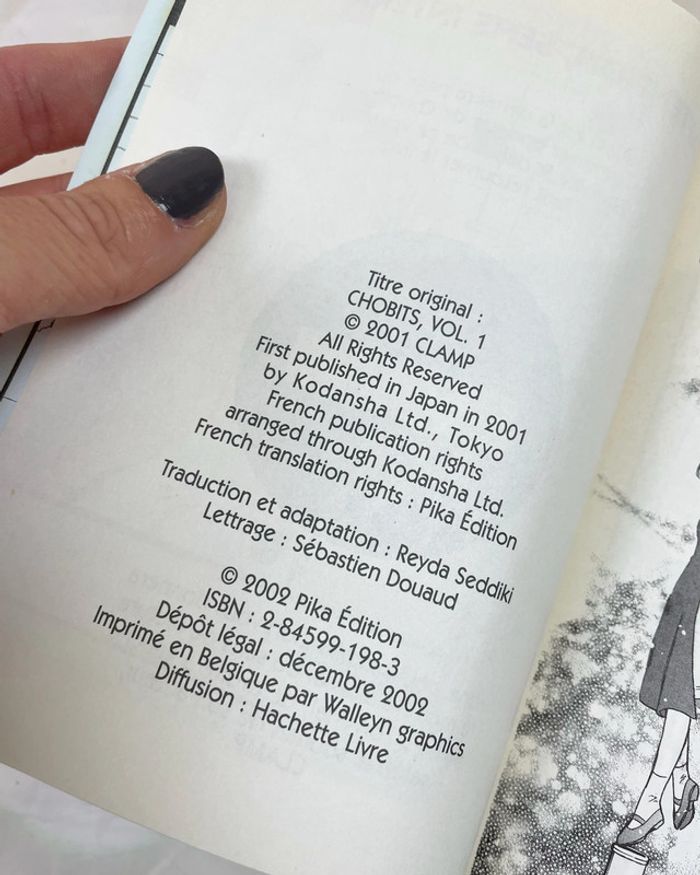 Titre original :
CHOBITS, VOL. 1
© 2001 CLAMP
All Rights Reserved
First published in Japan in 2001
by Kodansha Ltd., Tokyo
French publication rights
arranged through Kodansha Ltd.
French translation rights : Pika Édition
Traduction et adaptation : Reyda Seddiki
Lettrage : Sébastien Douaud
© 2002 Pika Édition
ISBN : 2-84599-198-3
Dépôt légal : décembre 2002
Imprimé en Belgique par Walleyn graphics
Diffusion : Hachette Livre